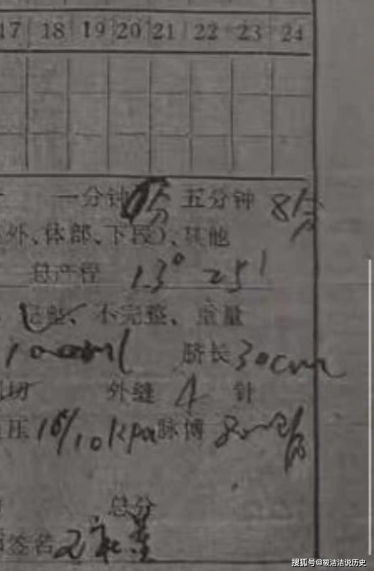 17 18 19 20 21 22 23 24
一分钟 分 五分钟 8分
外、体部、下段)、其他
总产程 13° 25′
完整、不完整、重量
1000ml 脐长 30cm
切 外缝 4 针
压 16/10 kpa 脉博 80次/分
总分
签名
搜狐号@毅洁洁说历史